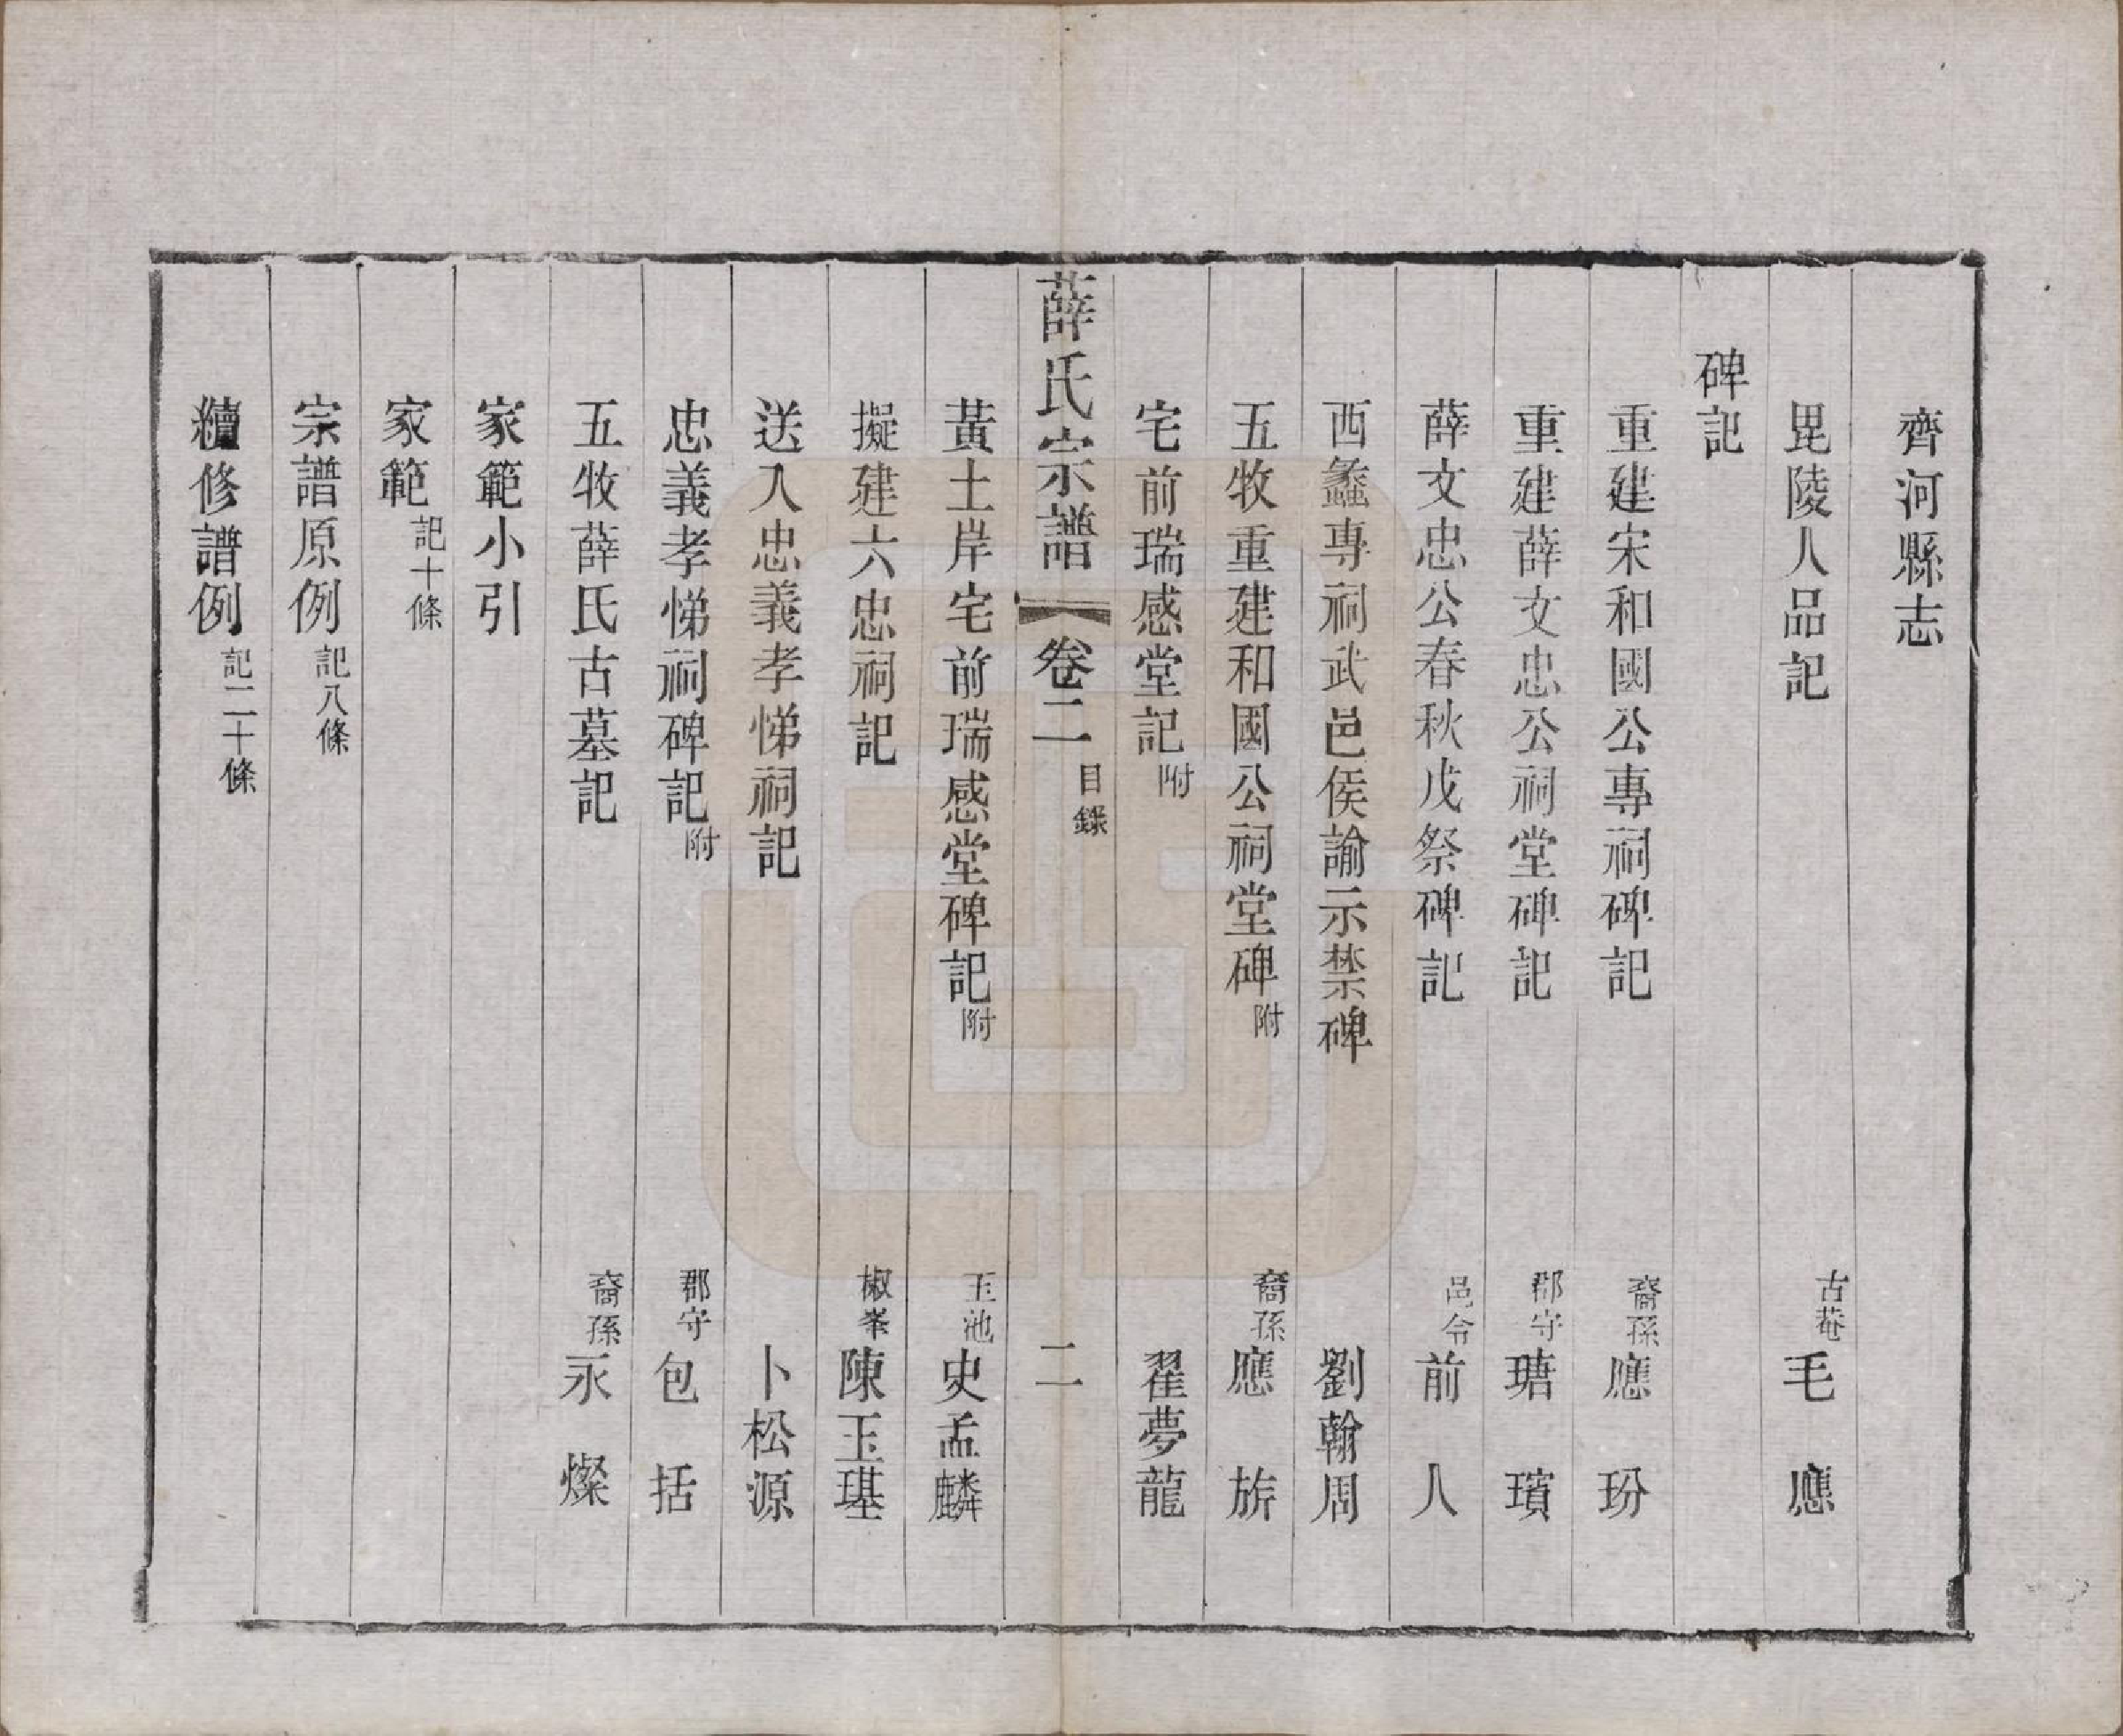 齊河縣志
毘陵人品記 古菴 毛應
碑記
重建宋和國公專祠碑記 裔孫 應玢
重建薛文忠公祠堂碑記 郡守 瑭璸
薛文忠公春秋戊祭碑記 邑令 前人
西蠡專祠武邑侯諭示禁碑 劉翰周
五牧重建和國公祠堂碑附 裔孫 應旂
宅前瑞感堂記附 翟夢龍
薛氏宗譜 卷二 目錄 二
黃土岸宅前瑞感堂碑記附 玉池 史孟麟
擬建六忠祠記 椒峯 陳玉璂
送入忠義孝悌祠記 卜松源
忠義孝悌祠碑記附 郡守 包括
五牧薛氏古墓記 裔孫 永燦
家範小引
家範 記十條
宗譜原例 記八條
續修譜例 記二十條